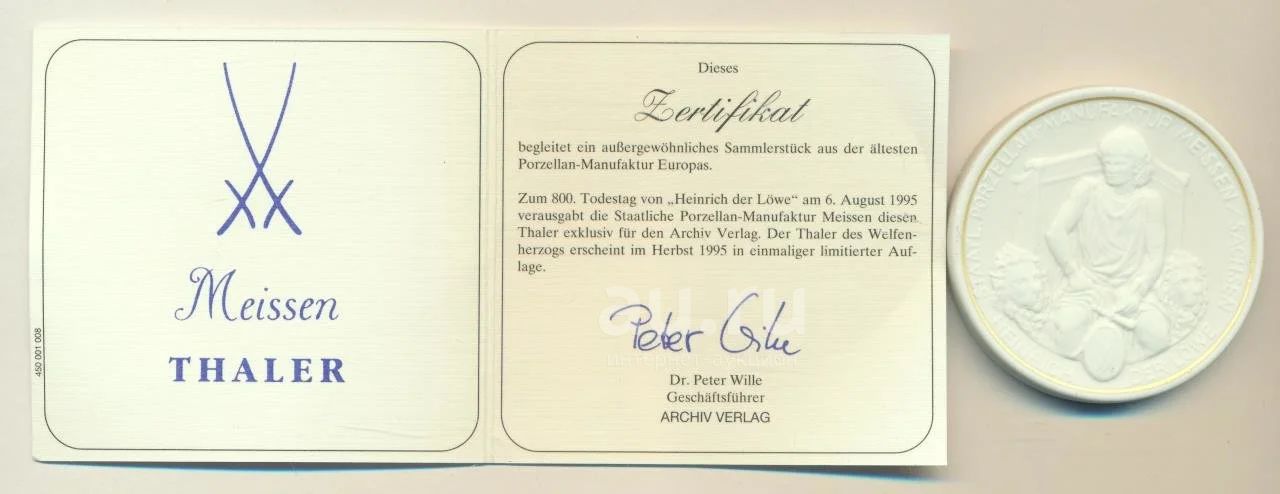 Meissen
THALER
450 001 008
Dieses
Zertifikat
begleitet ein außergewöhnliches Sammlerstück aus der ältesten
Porzellan-Manufaktur Europas.
Zum 800. Todestag von „Heinrich der Löwe“ am 6. August 1995
verausgabt die Staatliche Porzellan-Manufaktur Meissen diesen
Thaler exklusiv für den Archiv Verlag. Der Thaler des Welfen-
herzogs erscheint im Herbst 1995 in einmaliger limitierter Auf-
lage.
au.ru
интернет-аукцион
Peter Wille
Dr. Peter Wille
Geschäftsführer
ARCHIV VERLAG
STAATL. PORZELLAN-MANUFAKTUR MEISSEN / SACHSEN